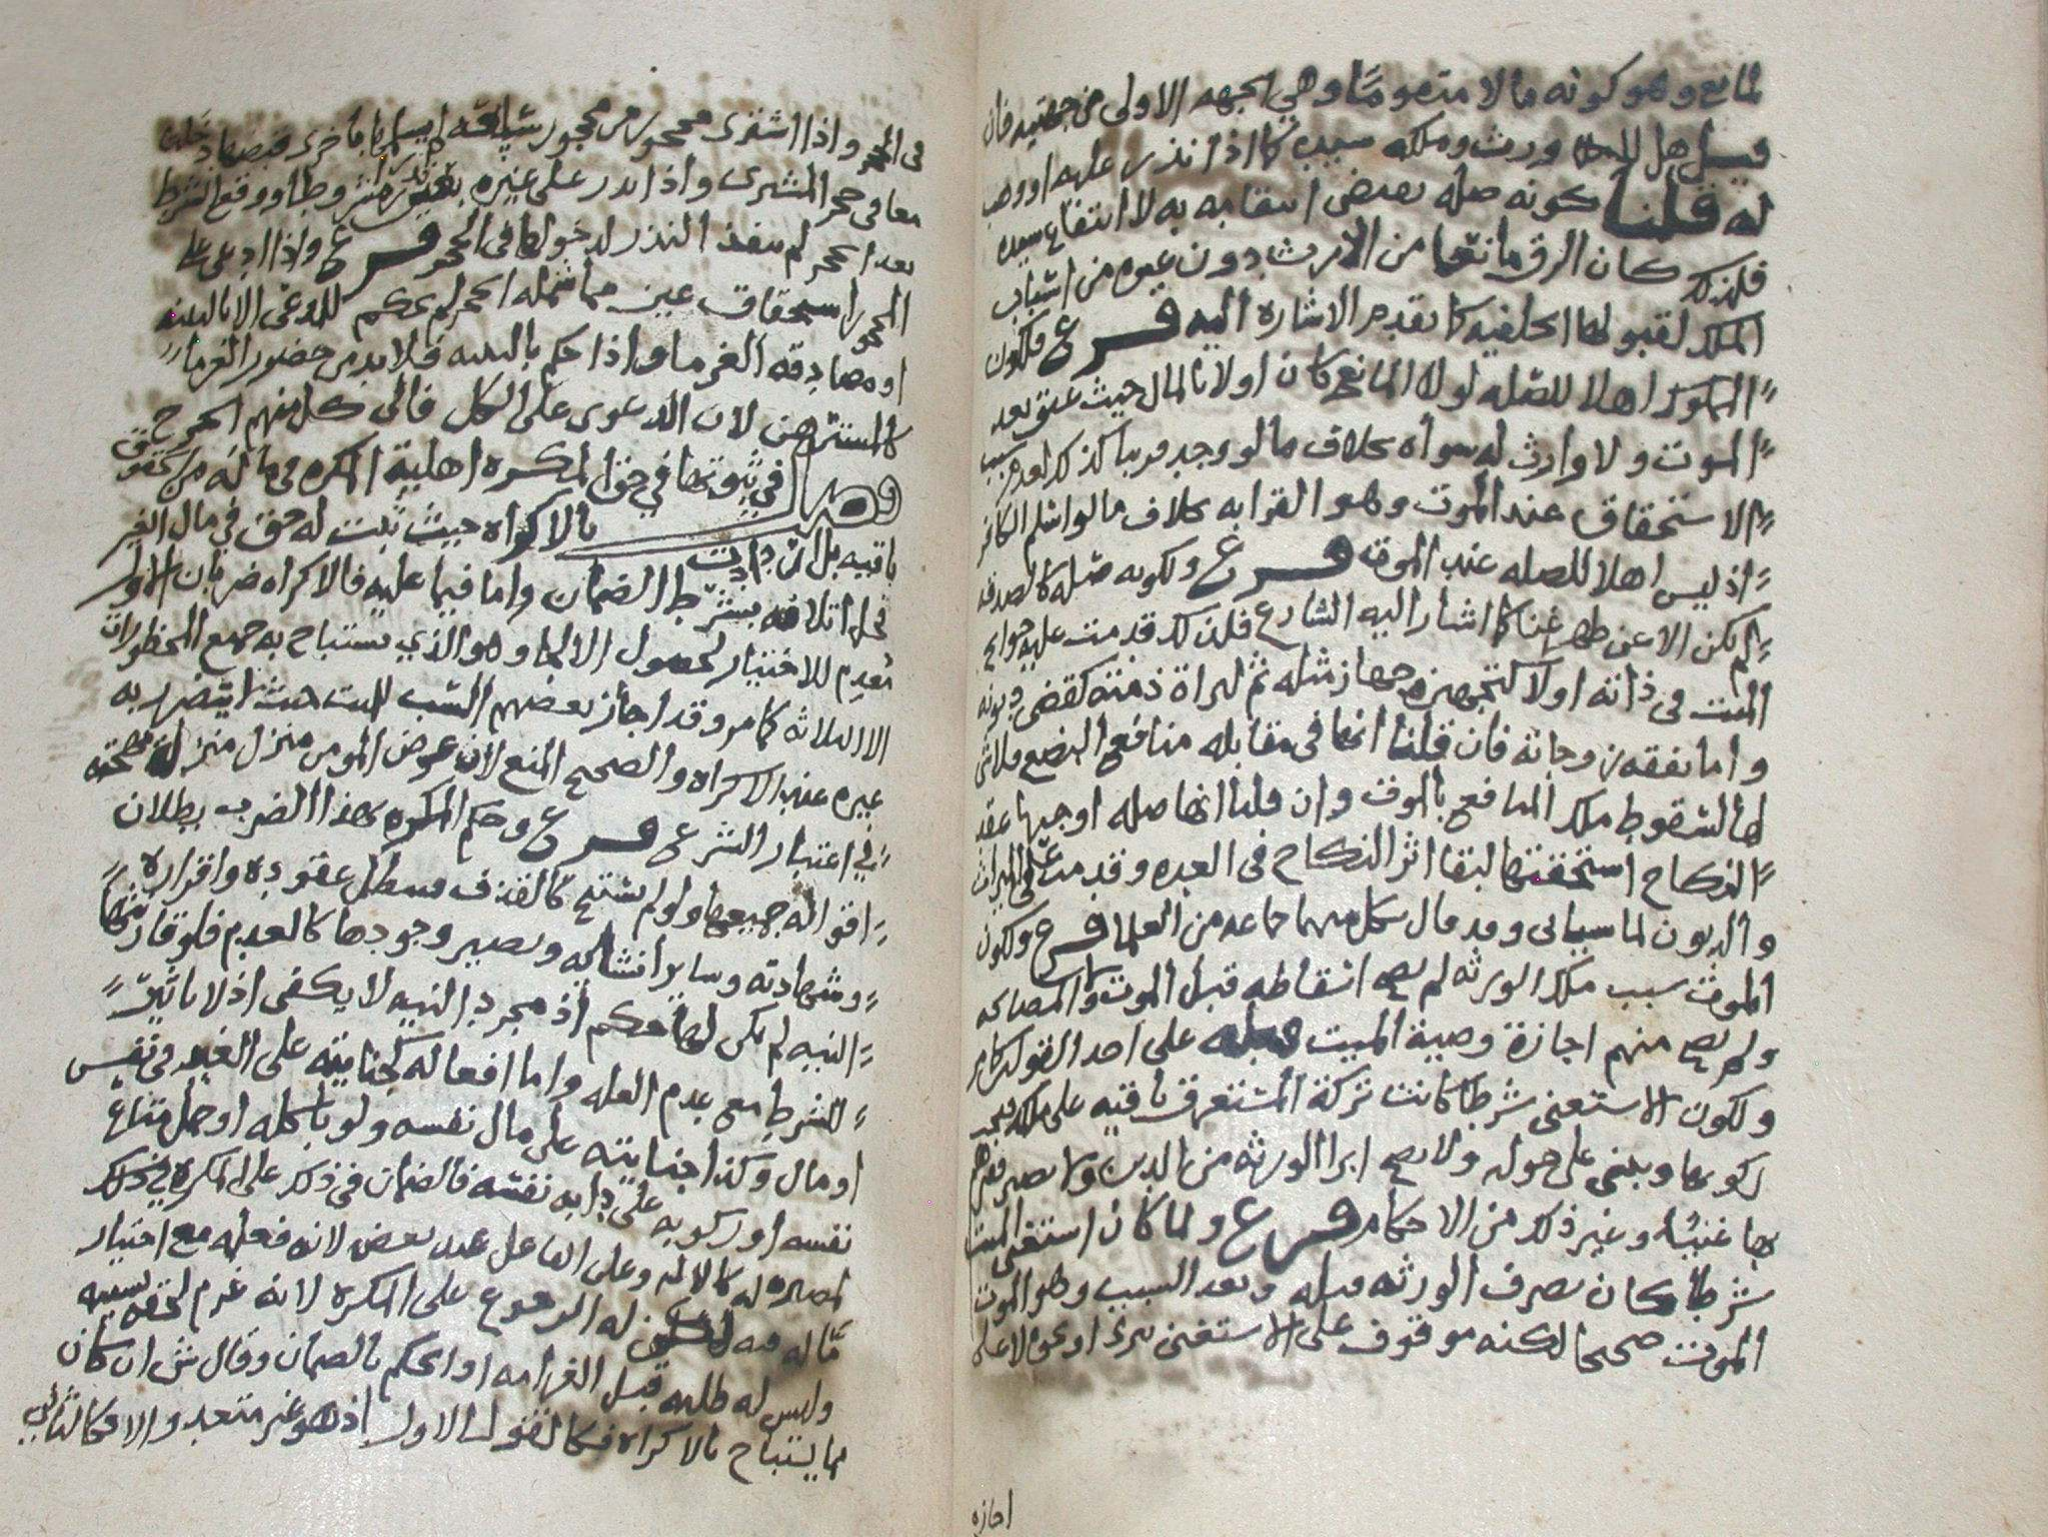 لمانع وهو كونه مالا متقوما وهي الجهه الاولى من جهتيه فان
قيل هل ورث وملكه سيده كما اذا نذر عليه او وهب
له قلنا كونه صله يقتضي انتفاعه به لا انتفاع سيده
فلذلك كان الرق مانعا من الارث دون غيره من اسباب
الملك لقبولها الخلفيه كما تقدم الاشاره اليه فرع فلكون
المملوك اهلا للصله لولا المانع كان اولا بالمال حيث عتق بعد
الموت ولا وارث له سواه بخلاف ما لو وجد سبب
الاستحقاق عند الموت وهو القرابه بخلاف ما لو اسلم الكافر
اذ ليس اهلا للصله عند الموت فرع ولكونه صله كالصدقه
لم يكن الا عن ظهر غنا كما اشار اليه الشارع فلذلك قدمت عليه حوايج
الميت في ذاته اولا كتجهيزه جهاز مثله ثم لبراة ذمته كقضى ديونه
واما نفقه زوجاته فان قلنا انها في مقابله منافع البضع فلا شي
لها لسقوط ملك المنافع بالموت وان قلنا انها صله اوجبها عقد
النكاح استحقتها لبقا اثر النكاح في العده وقدمت على الميراث
والديون لما سياتي وقد قال بكل منهما جماعه من العلما فرع ولكون
الموت سبب ملك الورثه لم يصح اسقاطه قبل الموت والمصالحه
ولم يصح منهم اجازة وصية الميت قبله على احد القولين كما مر
ولكون الاستغنى شرطا كانت تركة المستغرق باقيه على ملكه فيجب
زكوتها ويبنى على حوله ولا يصح ابرا الورثه من الدين ولا يصير فقيرهم
بها غنيا وغير ذلك من الاحكام فرع ولما كان استغنى الميت
شرطا كان تصرف الورثه قبله وبعد السبب وهو الموت
الموت صحيحا لكنه موقوف على الاستغنى بابرا او نحو لا على
اجازه
في الحجر واذا اشترى محجور من محجور شيا فسلم بأخرى قبضها دخلت
معا في حجر المشتري واذا نذر على غيره بعين نذرا مشروطا ووقع الشرط
بعد الحجر لم ينفذ النذر لدخولها في الحجر فرع واذا ادعى على
المحجور استحقاق عين مما شمله الحجر لم يحكم للمدعي الا بالبينه
او مصادقه الغرما واذا حكم بالبينه فلا بد من حضور الغرما
كالمسترهن لان الدعوى على الكل فالى كل منهم الجرح
فصل في ثبوتها في حق المكره اهلية المكره في ما له من حقوق
باقيه بل ان زادت بالاكراه حيث ثبت له حق في مال الغير
كحل اتلافه بشرط الضمان واما فيما عليه فالاكراه ضربان الاول
معدم للاختيار لحصول الالجا وهو الذي يستباح به جميع المحظورات
الا الثلاثه كما مر وقد اجاز بعضهم السب للميت حيث لا يتضرر به
غيره عند الاكراه والصحيح المنع لان عرض المومن منزل منزله مهجته
في اعتبار الشرع فرع وحكم المكره بهذا الضرب بطلان
اقواله جميعها ولو لم يستبح كالقذف فيبطل عقوده واقراره
وشهادته وساير انشااته ويصير وجودها كالعدم فلو قارنتها
النيه لم يكن لها حكم اذ مجرد النيه لا يكفي اذ لا تاثير
للشرط مع عدم العله واما افعاله كجنايته على الغير في نفس
او مال وكذا جنايته على مال نفسه ولو باكله او حمل متاع
نفسه او ركوبه على دابه نفسه فالضمان في ذلك على المكره في ذلك
لمصيره له كالاله وعلى الفاعل عند بعض لانه فعله مع اختيار
ما له فيه لكن له الرجوع على المكره لانه غرم لحقه بسببه
وليس له طلبه قبل الغرامه او الحكم بالضمان وقال ش ان كان
مما يستباح بالاكراه فكالقول الاول اذ هو غير متعد والا فكالثاني